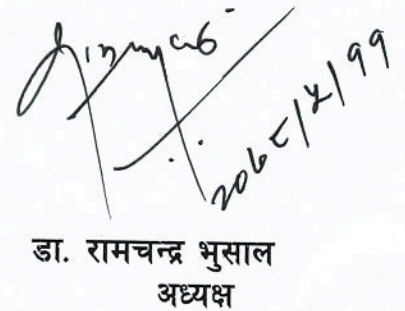 २०६८/५/११
डा. रामचन्द्र भुसाल
अध्यक्ष